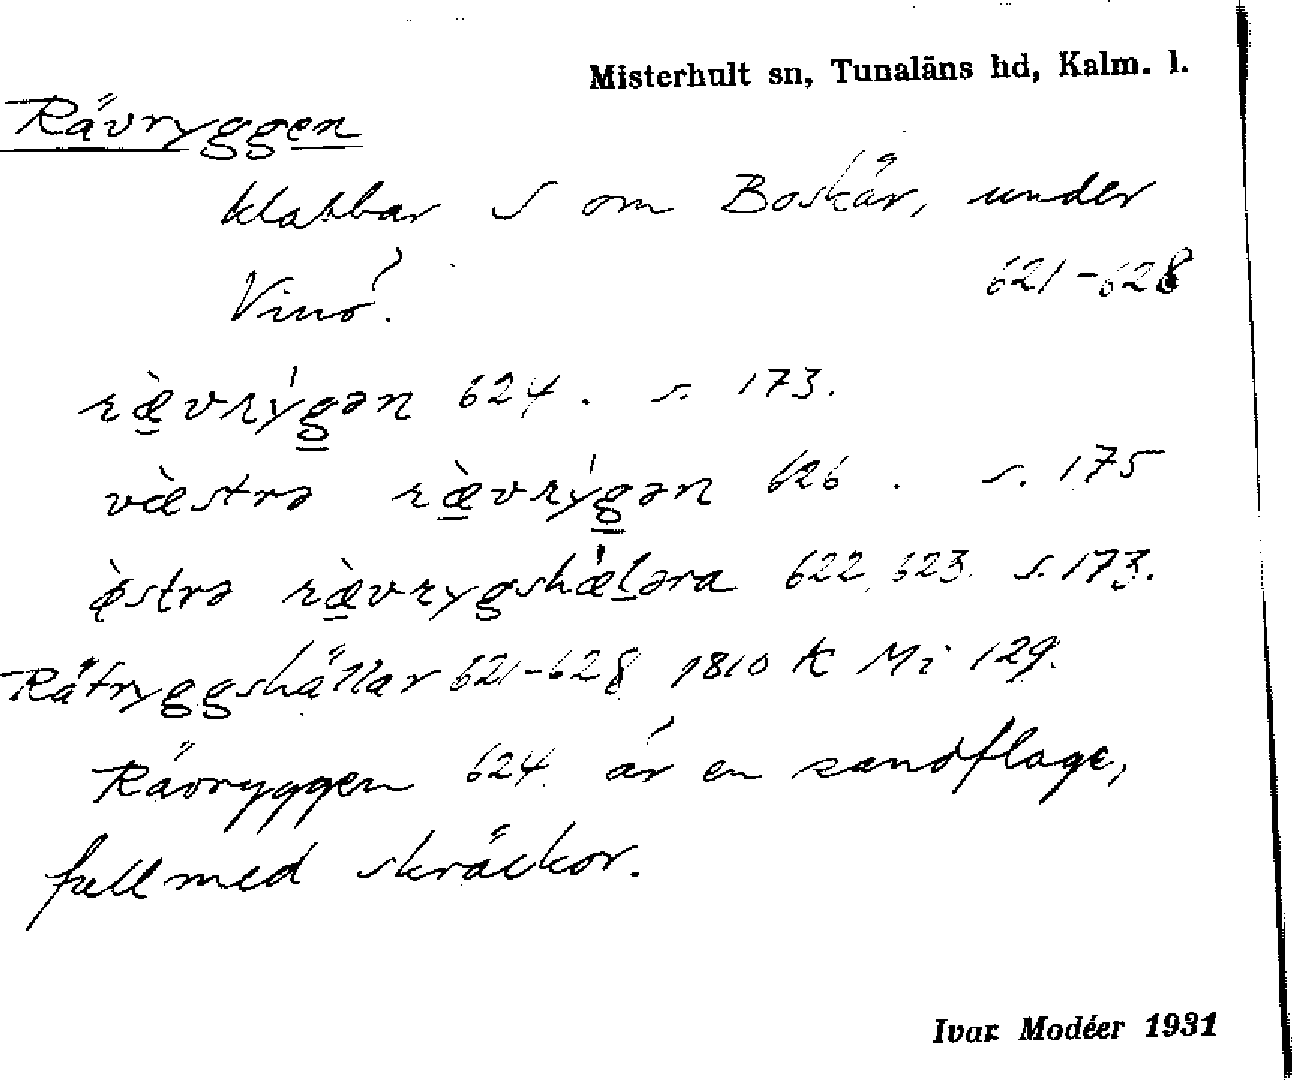 Misterhult sn, Tunaläns hd, Kalm. l.
Rävryggen
klabbar S om Boskär, under
Vinö. 621-628
ræ̀vrýgən 624. s. 173.
væ̀strə ræ̀vrýgən 626. s. 175
œ̀strə ræ̀vrygshǽlərа 622, 623. s. 173.
Räfryggshällar 621-628 1810 K Mi 129.
Rävryggen 624. är en sandflage,
full med skräckor.
Ivar Modéer 1931